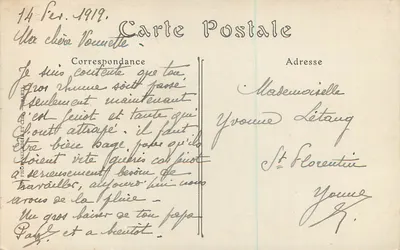 14 Fev. 1919.
Carte Postale
Ma chère Vonnette
Correspondance
Adresse
Je suis contente que ton
gros rhume soit passé
seulement maintenant
c'est Juiot et tante qui
l'ont attrapé. il faut
être bien sage pour qu'ils
soient vite guéris car
a sérieusement besoin de
travailler, aujourd'hui nous
avons de la pluie.
Un gros baiser de ton papa
Paul. et a bientot.
Mademoiselle
Yvonne Létang
St Florentin
Yonne